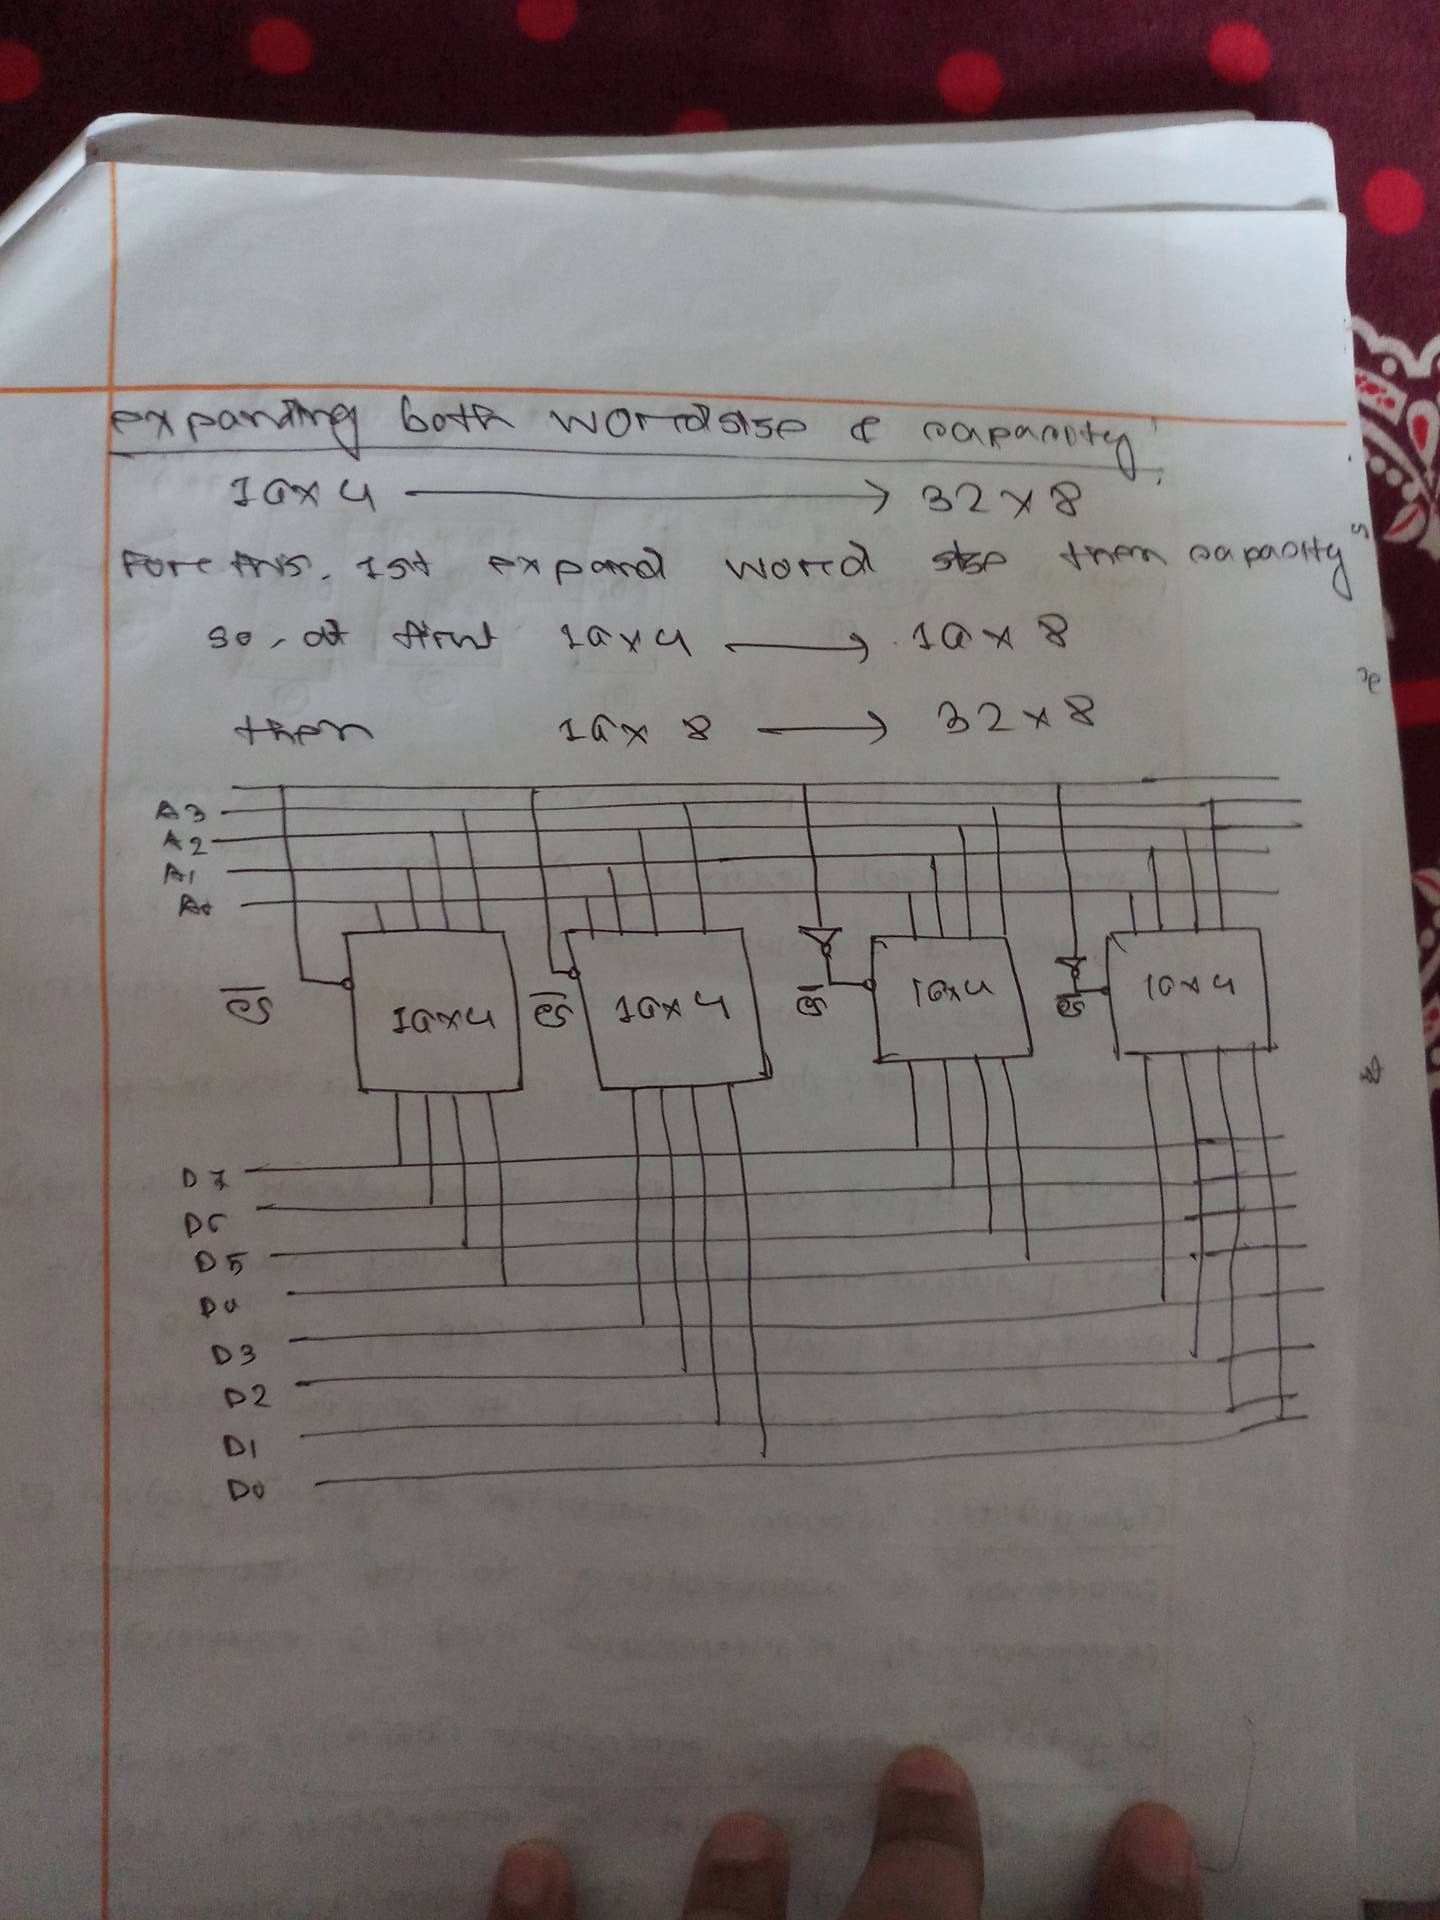 expanding both wordsise & capacity:
16x4 → 32x8
Fore this, 1st expand word sise then capacity
so, at first 16x4 → 16x8
then 16x8 → 32x8
A3
A2
A1
A0
CS 16x4 CS 16x4 CS 16x4 CS 16x4
D7
D6
D5
D4
D3
D2
D1
D0